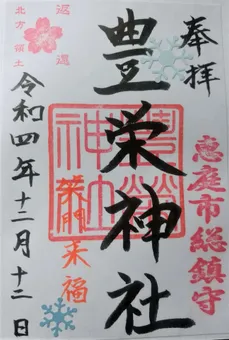 奉拝
恵庭市総鎮守
豊栄神社
豊榮神社
笑門来福
返還
北方領土
令和四年十二月十二日